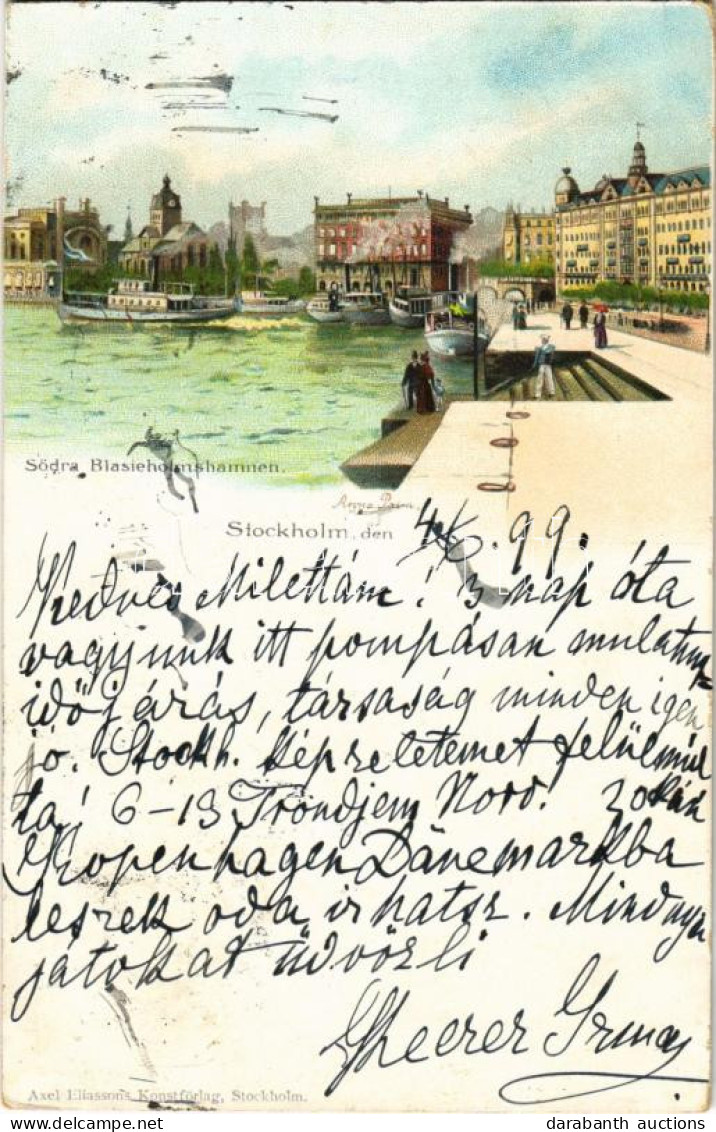 Södra Blasieholmshamnen.
Stockholm, den 4/6. 99.
Kedves Milettám! 3 nap óta
vagyunk itt pompásan mulatunk
időjárás, társaság minden igen
jó. Stockh. képzeletemet felülmul
ta! 6-13 Tröndjem Norv. 20kán
Kopenhagen Dänemarkba
leszek oda irhatsz. Mindnyá
játokat üdvözli
Scheerer
Axel Eliassons Konstförlag, Stockholm.
darabanth auctions